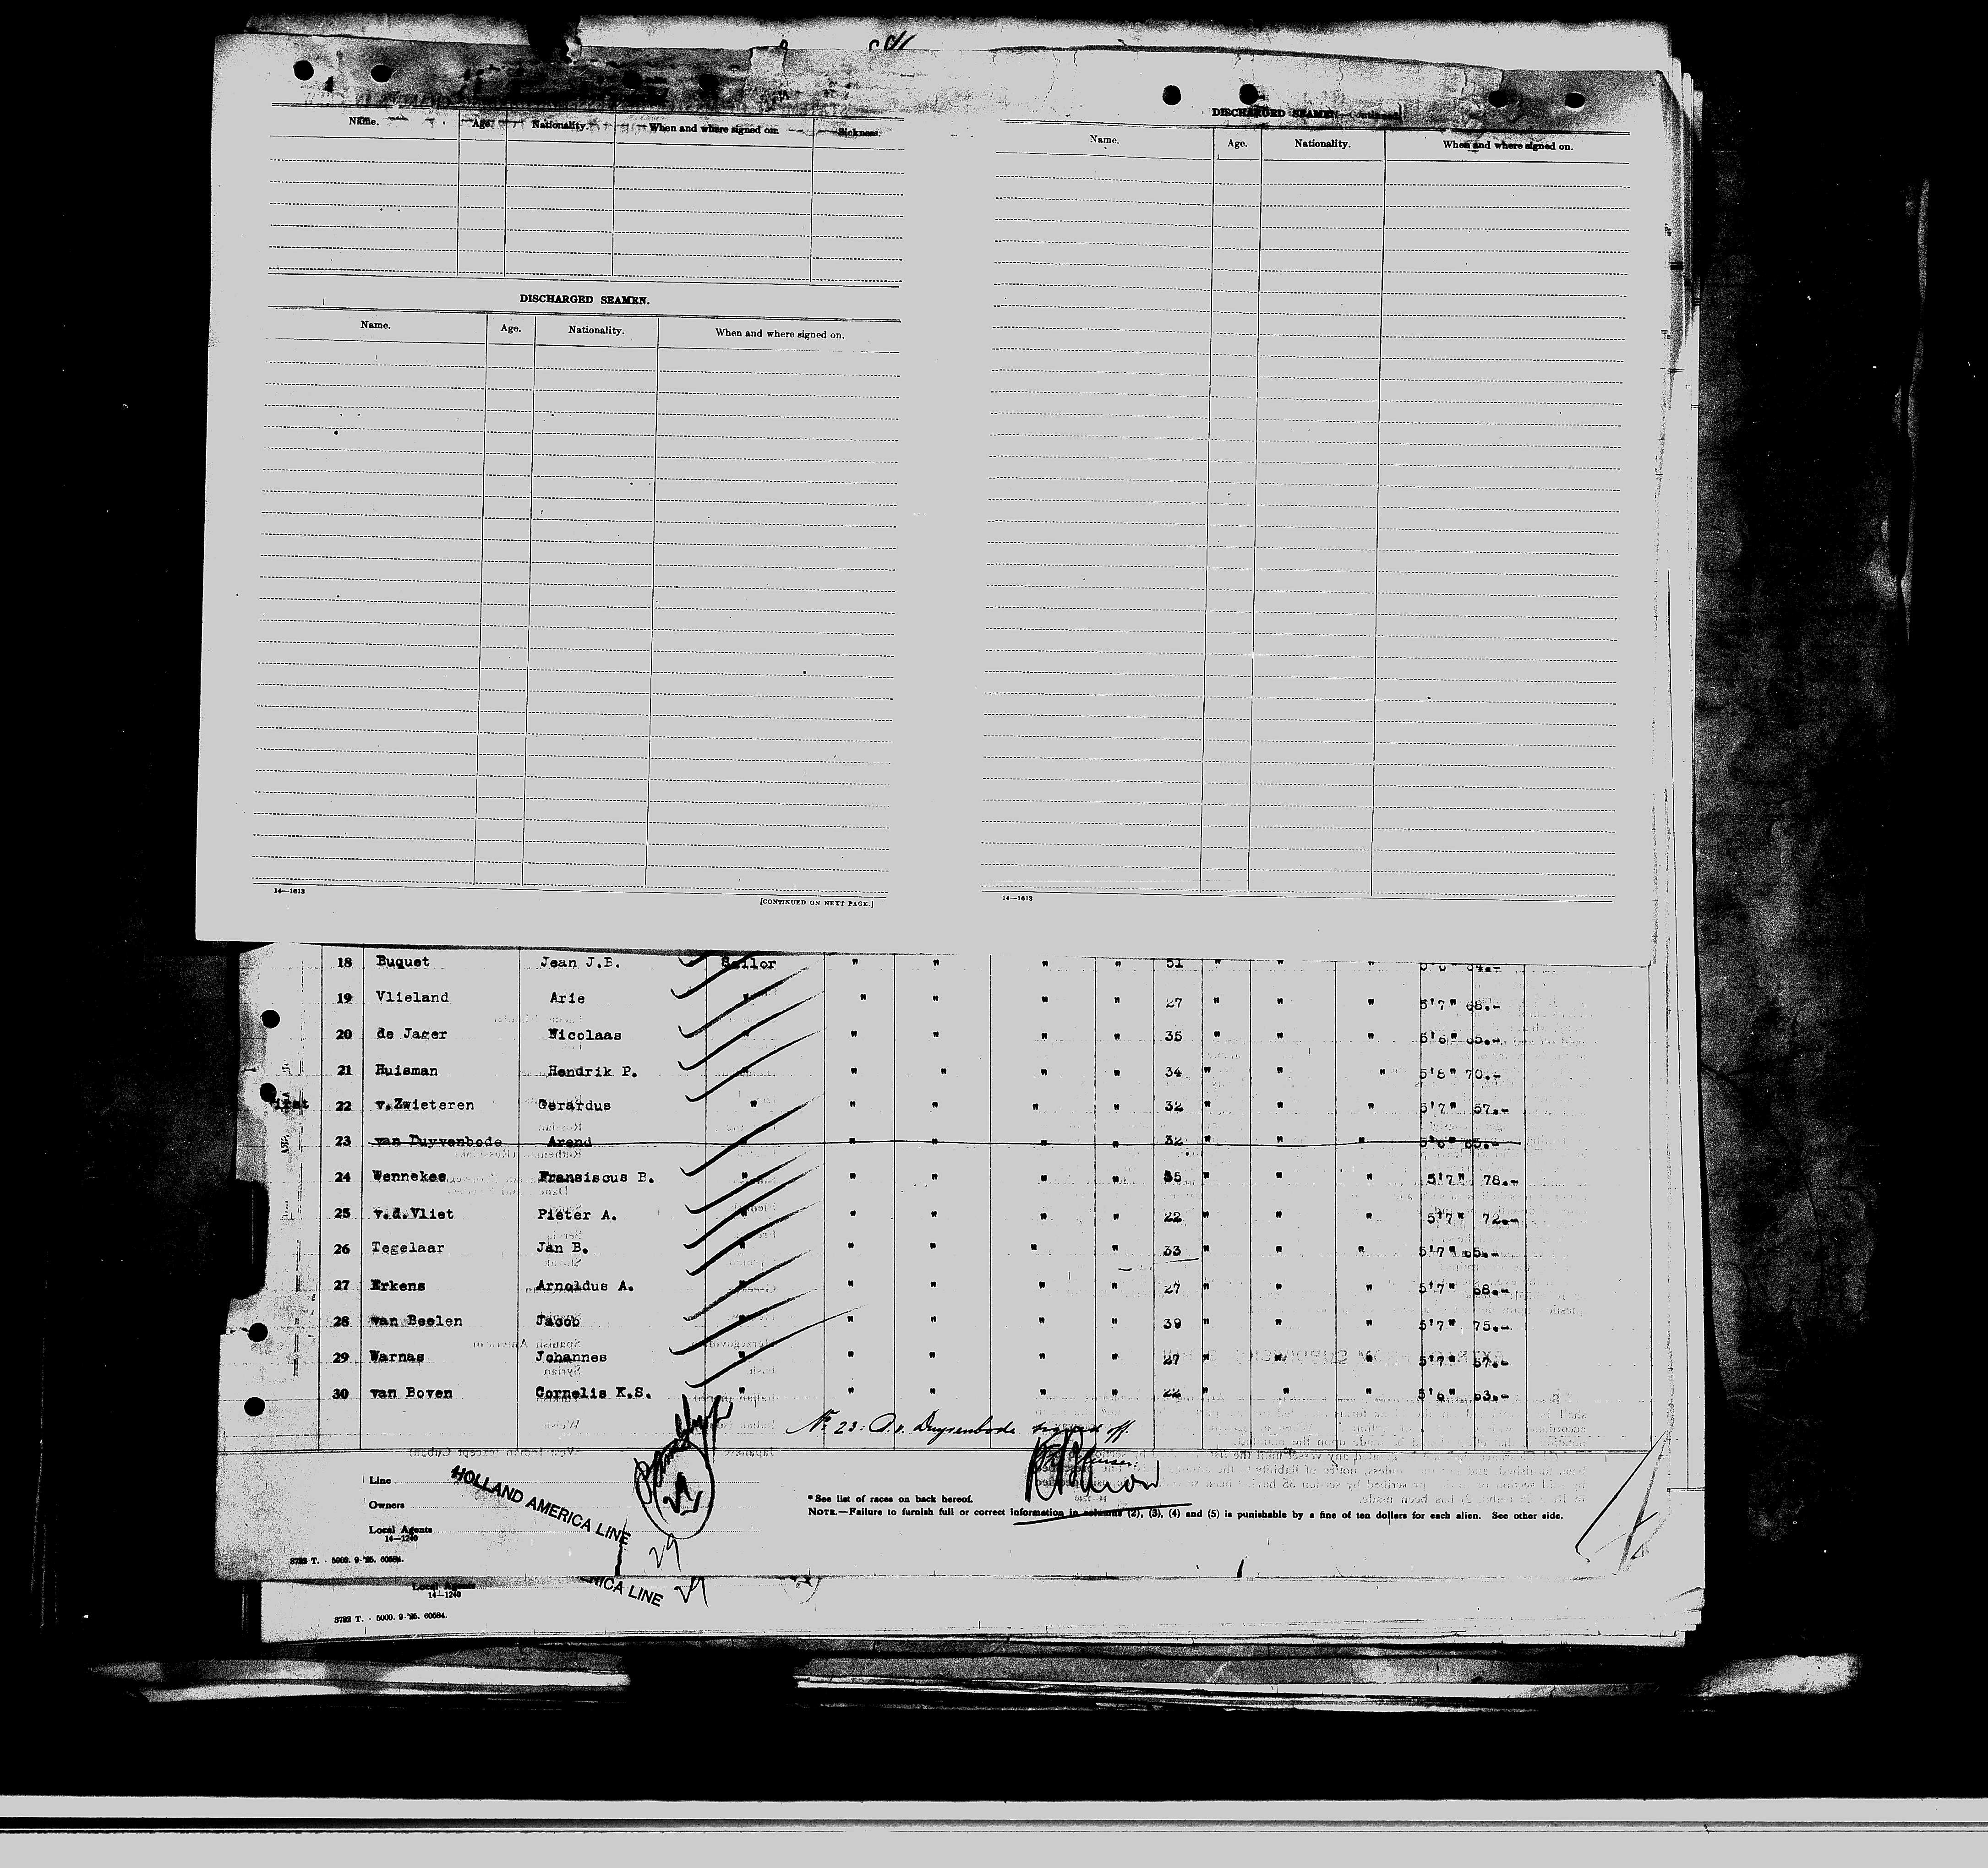 Name. Age. Nationality. When and where signed on. Sickness.
DISCHARGED SEAMEN.
Name. Age. Nationality. When and where signed on.
14—1613
[CONTINUED ON NEXT PAGE.]
DISCHARGED SEAMEN—Continued.
Name. Age. Nationality. When and where signed on.
14—1613
18 Buquet Jean J.B. Sailor " " " " 51 " " "
19 Vlieland Arie " " " " " 27 " " " 5'7" 68.-
20 de Jager Nicolaas " " " " " 35 " " " 5'8" 65.-
21 Huisman Hendrik P. " " " " " 34 " " " 5'8" 70.-
22 v.Zwieteren Gerardus " " " " " 32 " " " 5'7" 57.-
23 van Duyvenbode Arend " " " " " 32 " " " 5'6" 65.-
24 Wennekes Fransiscus B. " " " " " 35 " " " 5'7" 78.-
25 v.d.Vliet Pieter A. " " " " " 22 " " " 5'7" 72.-
26 Tegelaar Jan B. " " " " " 33 " " " 5'7" 65.-
27 Erkens Arnoldus A. " " " " " 27 " " " 5'7" 68.-
28 van Beelen Jacob " " " " " 39 " " " 5'7" 75.-
29 Warnas Johannes " " " " " 27 " " " 5'7" 67.-
30 van Boven Cornelis K.S. " " " " " 22 " " " 5'6" 63.-
No 23: A. v. Duyvenbode signed off.
Line
Owners
Local Agents
14—1240
HOLLAND AMERICA LINE
29
29
* See list of races on back hereof.
NOTE.—Failure to furnish full or correct information in columns (2), (3), (4) and (5) is punishable by a fine of ten dollars for each alien. See other side.
3722 T. - 5000. 9-'25. 60584.
Local Agents
14—1240
RICA LINE
29
3722 T. - 5000. 9-'25. 60584.